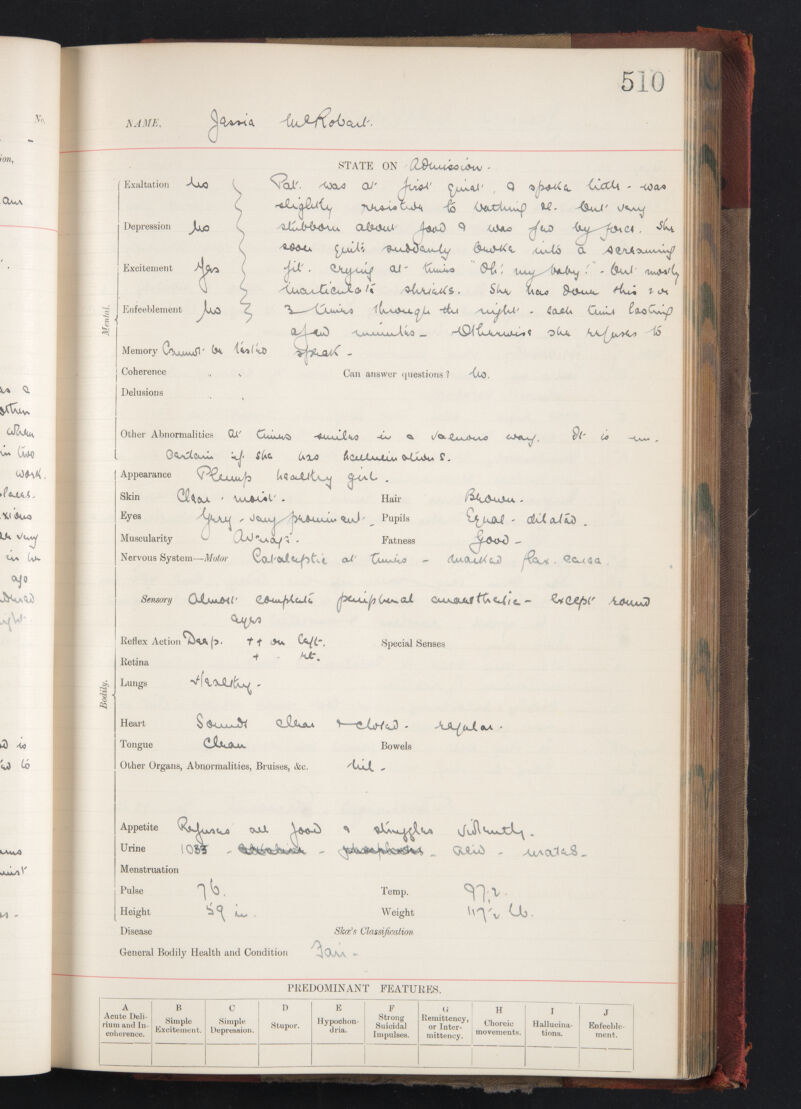 510
NAME. Jessie McRobert.
STATE ON Admission.
Mental.
Exaltation No
Depression No
Excitement Yes
Enfeeblement No
Pat. was at first quiet, & spoke little - was
slightly resistive to bathing &c. but very
stubborn about food & was fed by force. She
soon quite suddenly broke into a screaming
fit. crying at times "Oh! my baby!" - but mostly
inarticulate shrieks. She has done this 2 or
3 times through the night - each time lasting
a few minutes - Otherwise she refuses to
speak -
Memory Cannot be tested
Coherence " "
Can answer questions? No.
Delusions " "
Other Abnormalities At times smiles in a vacuous way. It is un-
certain if she has hallucinations.
Bodily.
Appearance Plump healthy girl.
Skin Clear, moist.
Hair Brown.
Eyes Grey - very prominent.
Pupils Equal - dilated.
Muscularity Average.
Fatness Good -
Nervous System—Motor Cataleptic at times - marked flex. cerea
Sensory Almost complete peripheral anaesthetic - except round
eyes
Reflex Action Deep. ++ on left.
+ - rt.
Special Senses
Retina
Lungs Healthy -
Heart Sounds clear & closed - regular.
Tongue Clean
Bowels
Other Organs, Abnormalities, Bruises, &c. Nil -
Appetite Refuses all food & struggles violently.
Urine 1033 - acid - urates -
Menstruation
Pulse 76.
Temp. 97.2.
Height 59 in.
Weight 117½ lb.
Disease
Skae's Classification
General Bodily Health and Condition Fair -
PREDOMINANT FEATURES.
A Acute Delirium and Incoherence.
B Simple Excitement.
C Simple Depression.
D Stupor.
E Hypochondria.
F Strong Suicidal Impulses.
G Remittency, or Intermittency.
H Choreic movements.
I Hallucinations.
J Enfeeblement.